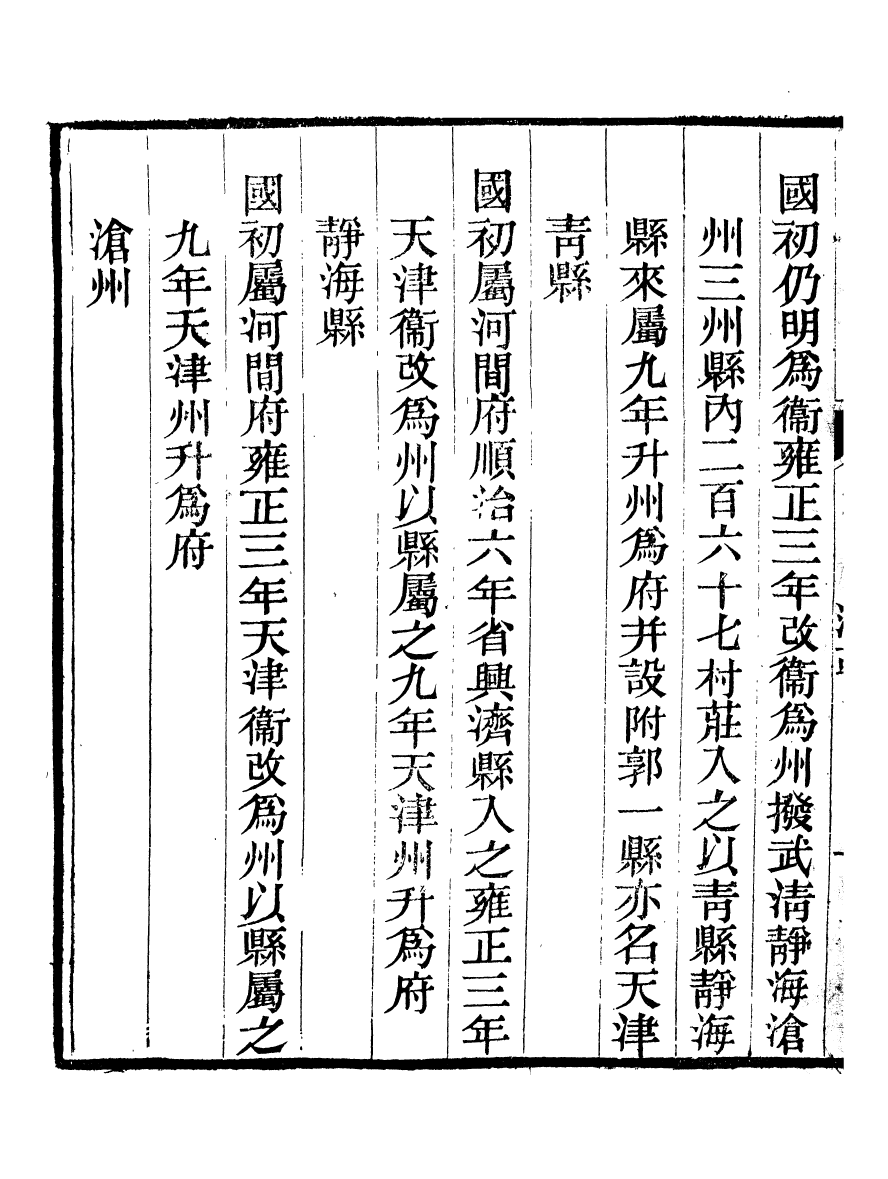 國初仍明爲衞雍正三年改衞爲州撥武淸靜海滄
州三州縣內二百六十七村莊入之以靑縣靜海
縣來屬九年升州爲府并設附郭一縣亦名天津
靑縣
國初屬河間府順治六年省興濟縣入之雍正三年
天津衞改爲州以縣屬之九年天津州升爲府
靜海縣
國初屬河間府雍正三年天津衞改爲州以縣屬之
九年天津州升爲府
滄州